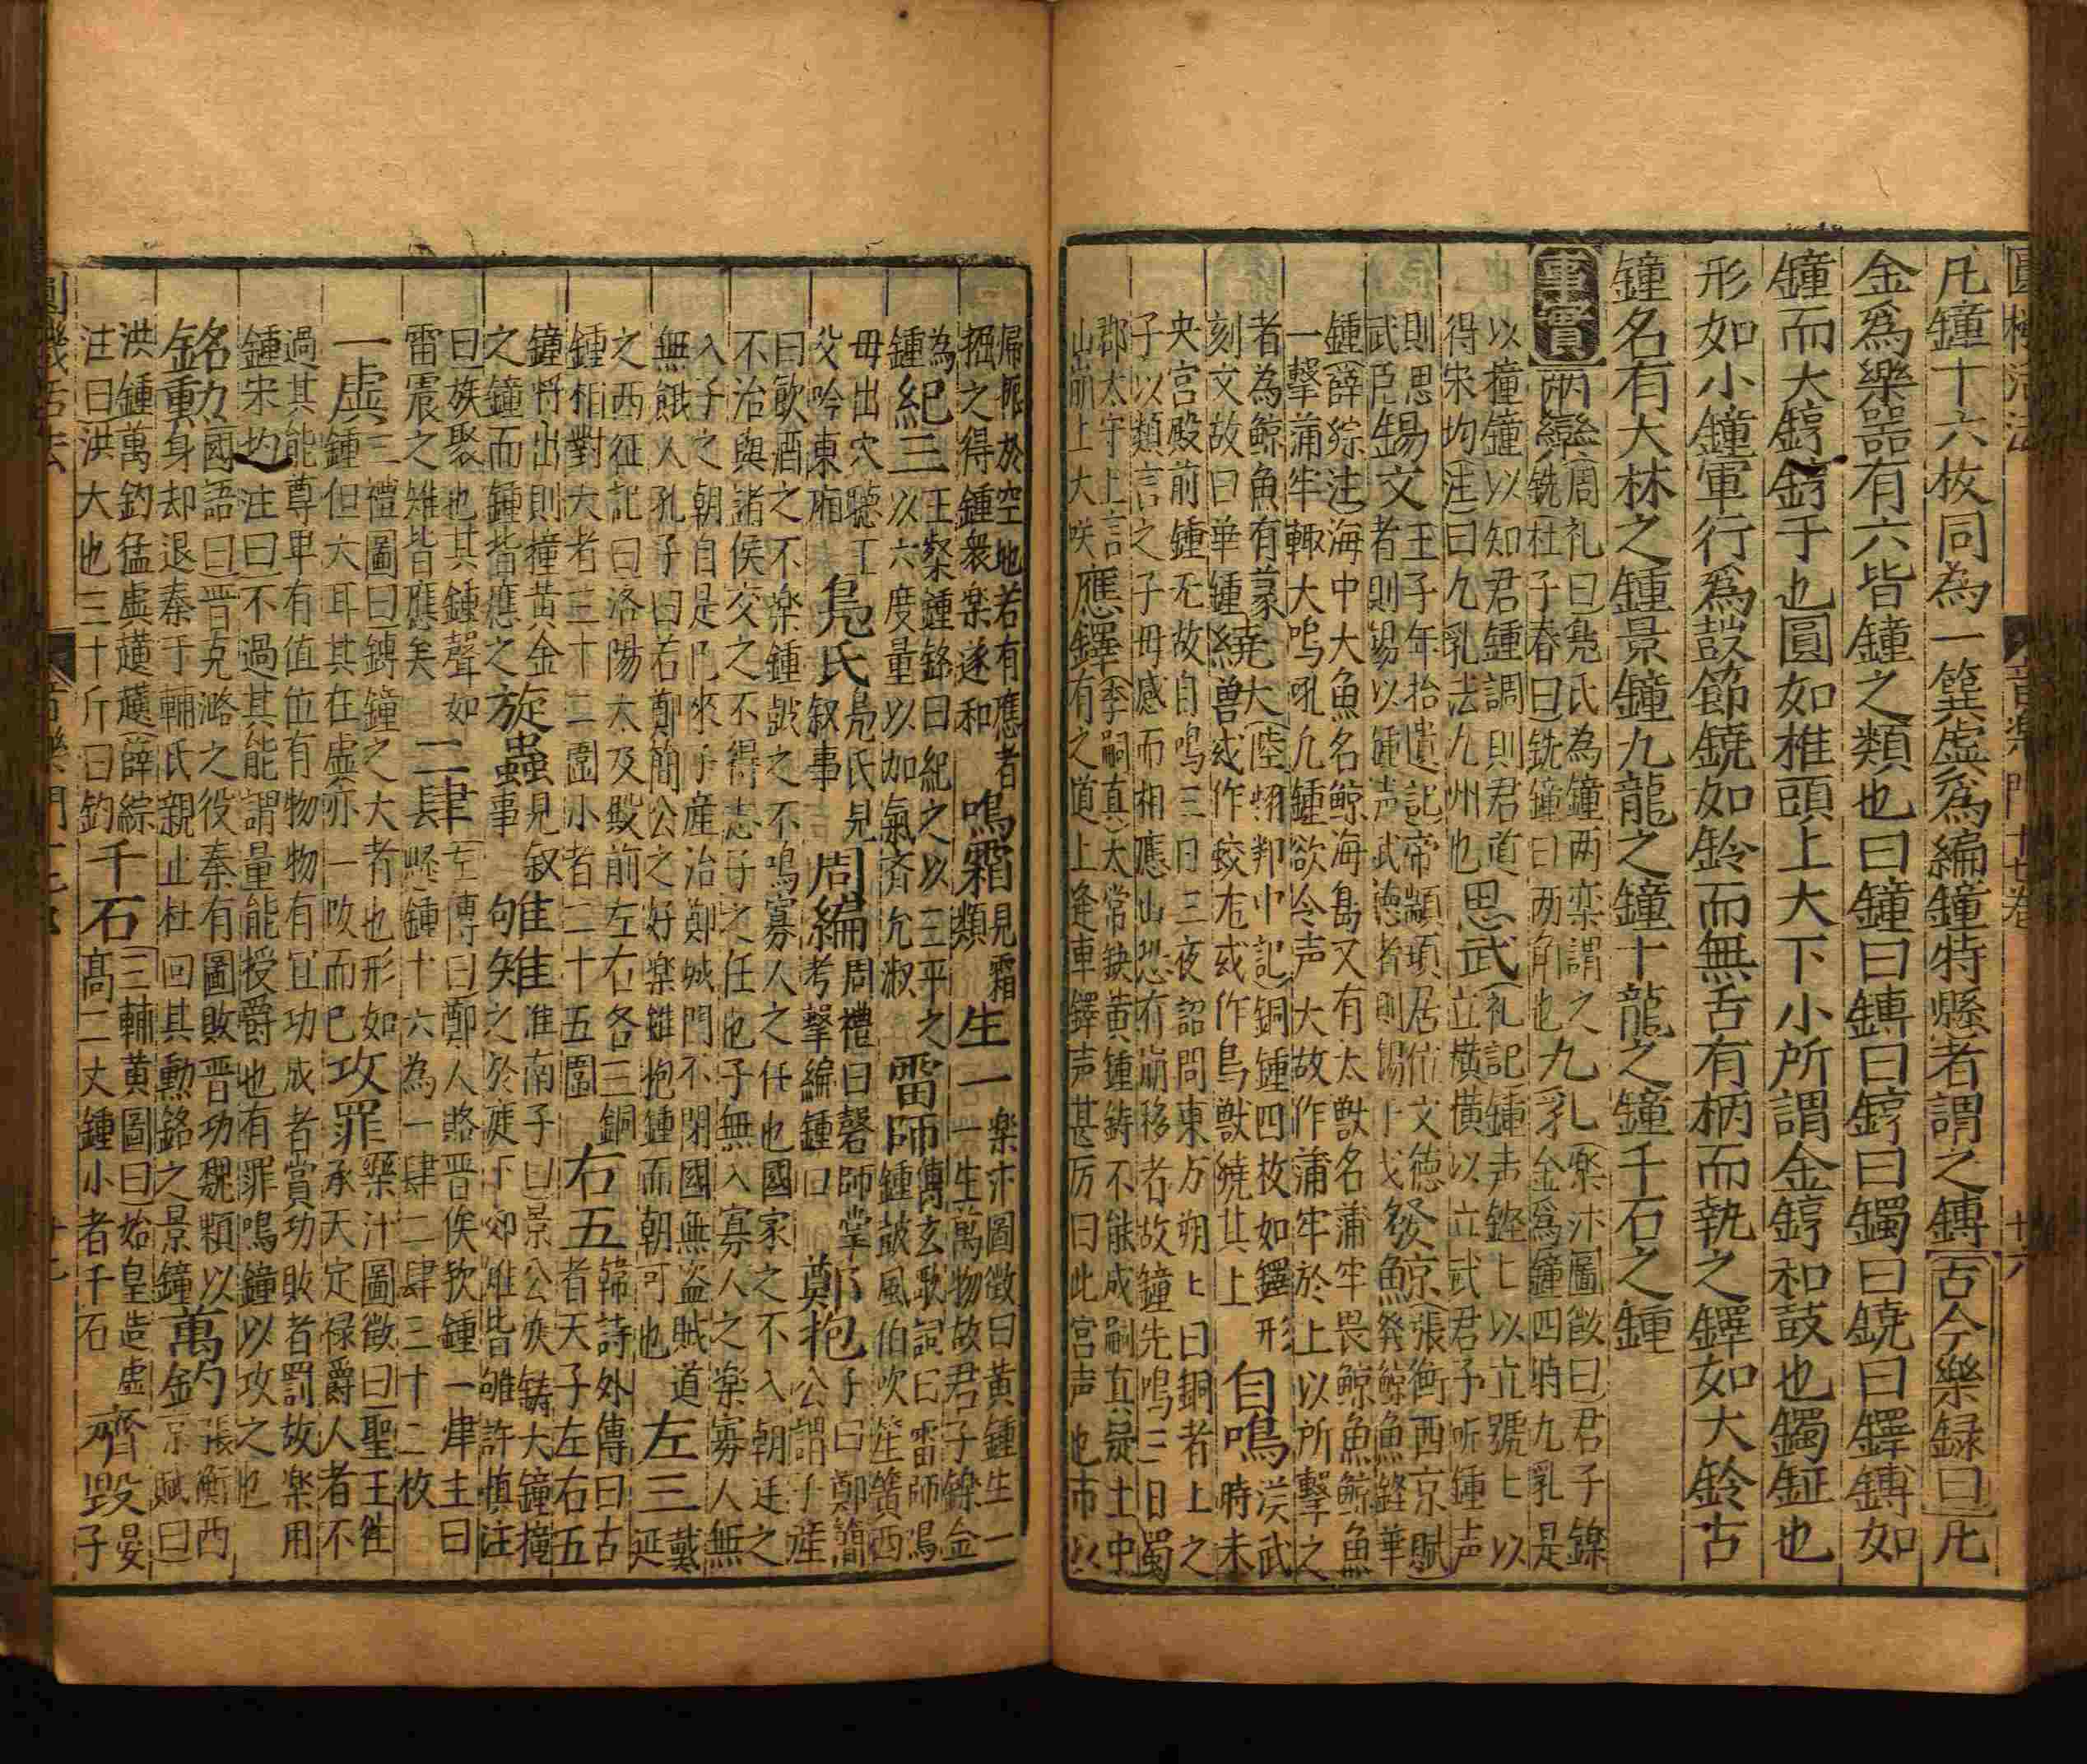 圓機活法 音樂門十七卷 十六
凡鐘十六枚同為一簨虛爲編鐘特縣者謂之鎛古今樂録曰凡
金爲樂噐有六皆鐘之類也曰鐘曰鎛曰錞曰鐲曰鐃曰鐸鎛如
鐘而大錞錞于也圓如椎頭上大下小所謂金錞和鼓也鐲鉦也
形如小鐘軍行爲鼓節鐃如鈴而無舌有柄而執之鐸如大鈴古
鐘名有大林之鍾景鐘九龍之鐘十龍之鐘千石之鍾
事實 兩欒 周礼曰鳬氏為鐘两栾謂之銑杜子春曰銑鐘曰两角也 九乳 楽汁圖徴曰君子鑠金爲鐘四時九乳是
以撞鐘以知君鍾調則君道得宋均注曰九乳法九州也 思武 礼記鍾声鏗ヒ以立號ヒ以立横横以立武君子听鍾声
則思武臣 錫文 王子年拾遺記帝顓頊居位文徳者則锡以鍾声武徳者則锡干戈 發鯨 張衡西京賦發鯨魚鏗華
鍾薛綜注海中大魚名鯨海島又有太獣名蒲牢畏鯨魚鯨魚一擊蒲牢輙大鳴吼凢鍾欲令声大故作蒲牢於上以所擊之
者為鯨魚有篆刻文故曰華鍾 繞獸 陸翙邺中記銅鍾四枚如鐸形或作蛟龙或作鳥獣繞其上 自鳴 漢武時未
央宮殿前鍾无故自鳴三日三夜詔問東方朔ヒ曰銅者上之子以類言之子母感而相應山恐有崩移者故鐘先鳴三日蜀
郡太守上言山崩上大咲 應鐸 李嗣真太常缺黄鍾鋳不能成嗣真疑土中有之道上逢車鐸声甚厉曰此宫声也市以
帰振於空地若有應者掘之得鍾衆楽遂和 鳴霜 見霜類 生一 楽汁圖徴曰黄鍾生一一生萬物故君子鑠金
為鍾 紀三 王粲鍾銘曰紀之以三平之以六度量以加氣齐允淑 雷師 傳玄歌詞曰雷師鳴鍾皷風伯吹笙簧西
母出穴聴王父吟東厢 鳬氏 鳬氏見叙事 周編 周禮曰磬師掌考擊編鍾曰 鄭抱 子曰鄭簡公謂子産
曰飲酒之不楽鍾皷之不鳴寡人之任也國家之不入朝廷之不治與諸侯交之不得志子之任也子無入寡人之楽寡人無
入子之朝自是已來子産治鄭城門不閉國無盗賊道無餓人孔子曰若鄭簡公之好楽雖抱鍾而朝可也 左三 戴延
之西征記曰洛陽太及殿前左右各三銅鍾相對大者三十二圍小者二十五圍 右五 韓詩外傳曰古者天子左右五
鐘將出則撞黄金之鐘而鍾皆應之 旋蟲 見叙事 雊雉 淮南子曰景公族鋳大鐘撞之於庭下郊雉皆雊許慎注
曰族聚也其鍾聲如雷震之雉皆應矣 二肆 左傳曰鄭人賂晋侯歌鍾一肆主曰縣鍾十六為一肆二肆三十二枚
一虡 三禮圖曰鎛鐘之大者也形如鍾但大耳其在虡亦一攷而已 攻罪 樂汁圖徴曰聖王徃承天定禄爵人者不
過其能尊卑有值位有物物有宜功成者賞功敗者罰故楽用鍾宋均注曰不過其能謂量能授爵也有罪鳴鐘以攻之也
銘勲 國語曰晋克潞之役秦有圖敗晋功魏顆以身却退秦于輔氏親止杜回其勲銘之景鐘 萬鈞 張衡西京賦曰
洪鍾萬鈞猛虡趪趪薛綜注曰洪大也三十斤曰鈞 千石 三輔黄圖曰始皇造虡高二丈鍾小者千石 齊毀 晏子
圓機活法 音樂門十七卷 十七